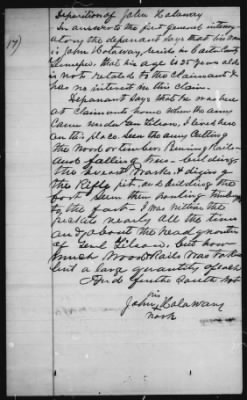 17)
Deposition of John Holaway
In answer to the first general interrog
atory the deponent says that his name
is John Holaway, reside in
Tennessee that his age is 25 years old
is not related to the claimant &
has no interest in this claim.
Deponant Says that he was here
at claimant home when the army
came under Gen Gileam, I lived here
on this place. Seen the army Cutting
the wood or timber Burning Rails
and falling trees - building
the Brest works & diging
the Rifle pit, and building the
Fort Seen them hauling timber
to the Fort. I was within the
pickets nearly all the time
and about the head quarters
of Genl Gileam. but how
much wood & Rails was taken
but a large quantity of each
And further Saith not
his
John X Holaway
mark